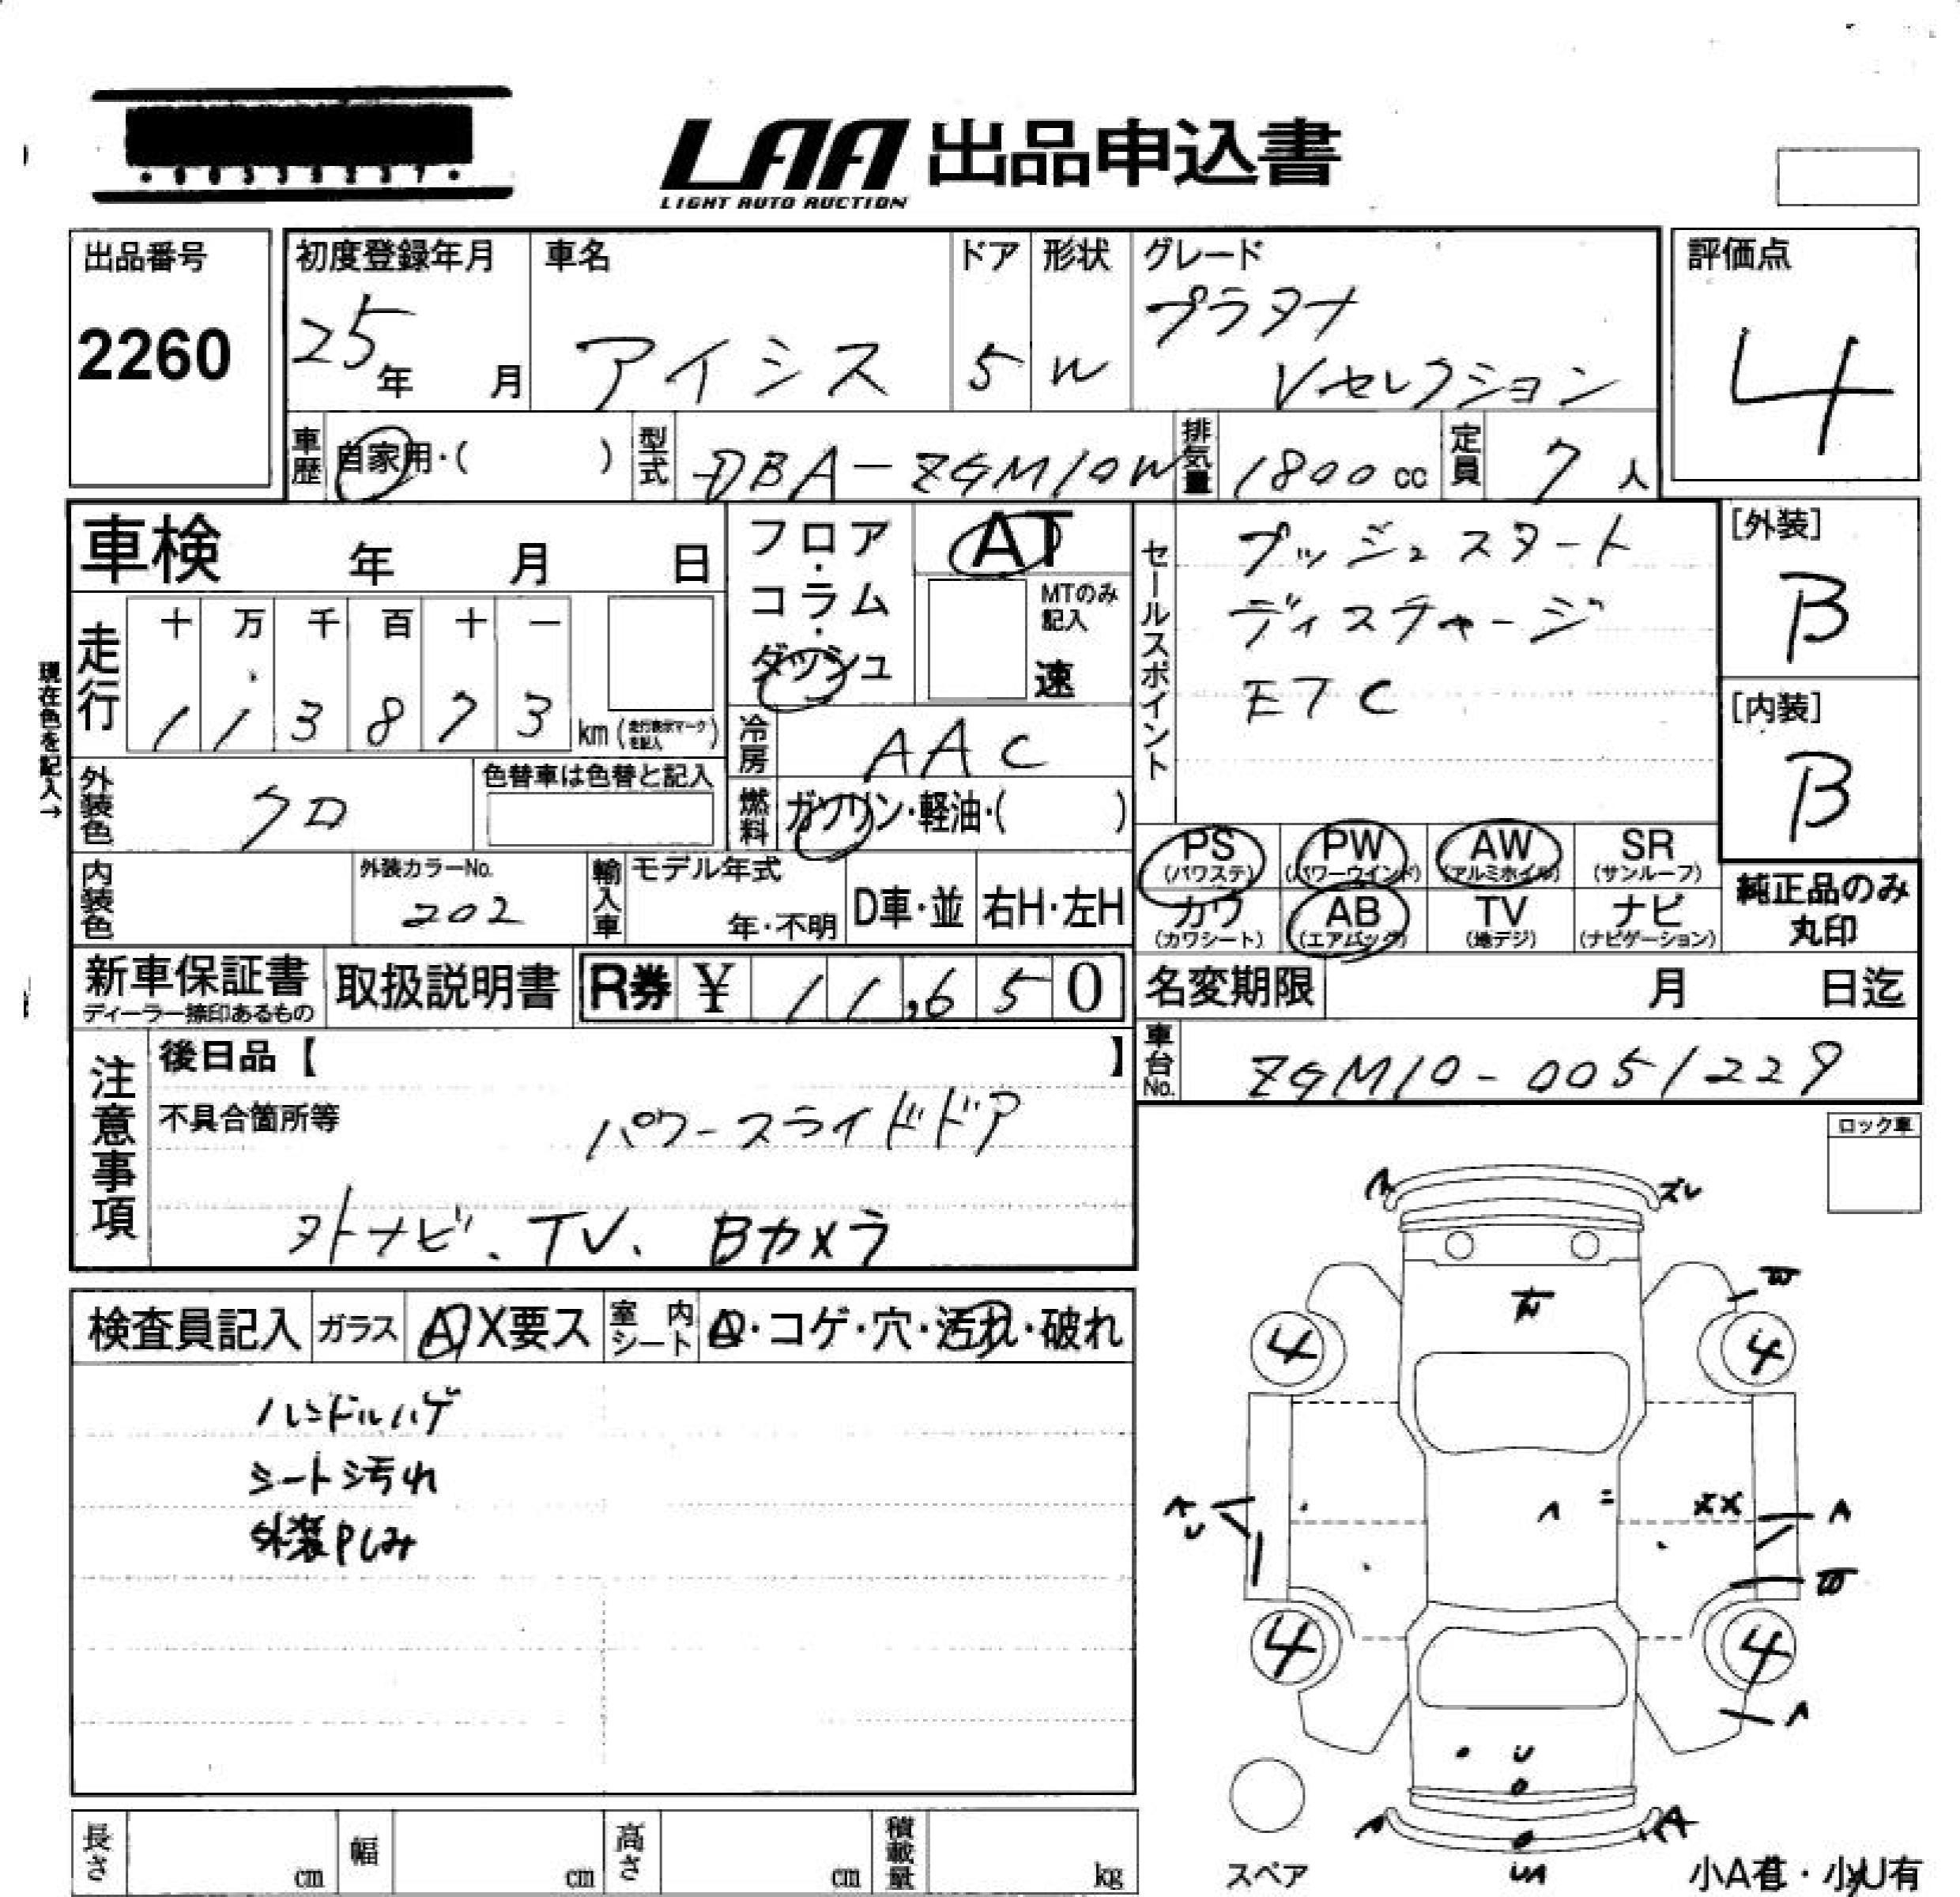 LAA 出品申込書
LIGHT AUTO AUCTION
出品番号
2260
初度登録年月
25年 月
車名
アイシス
ドア
5
形状
W
グレード
プラタナ
Vセレクション
評価点
4
車歴
自家用・( )
型式
DBA-ZGM10W
排気量
1800cc
定員
7人
車検 年 月 日
フロア・コラム・ダッシュ
AT
MTのみ記入
速
セールスポイント
プッシュスタート
ディスチャージ
ETC
[外装]
B
[内装]
B
現在色を記入→
走行
十 万 千 百 十 一
1 1 3 8 7 3 km (走行表示マークを記入)
冷房
AAC
燃料
ガソリン・軽油・( )
外装色
クロ
色替車は色替と記入
内装色
外装カラーNo.
202
輸入車
モデル年式
年・不明
D車・並
右H・左H
PS
(パワステ)
PW
(パワーウインド)
AW
(アルミホイル)
SR
(サンルーフ)
カワ
(カワシート)
AB
(エアバック)
TV
(地デジ)
ナビ
(ナビゲーション)
純正品のみ
丸印
新車保証書
ディーラー捺印あるもの
取扱説明書
R券 ¥ 11,650
名変期限 月 日迄
車台No.
ZGM10-0051229
注意事項
後日品【 】
不具合箇所等
パワースライドドア
外ナビ、TV、Bカメラ
ロック車
検査員記入
ガラス
A X要ス
室内シート
・コゲ・穴・汚れ・破れ
ハンドルハゲ
シート汚れ
外装Pしみ
ズレ
W
W
4
4
A
U
A
XX
A
W
4
4
A
U
A
UA
スペア
長さ cm
幅 cm
高さ cm
積載量 kg
小A有・小U有